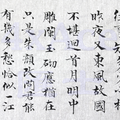 昨夜又東風故國
不堪迴首月明中
雕闌玉砌應猶在
只是朱顏改問君能
有幾多愁恰似一江